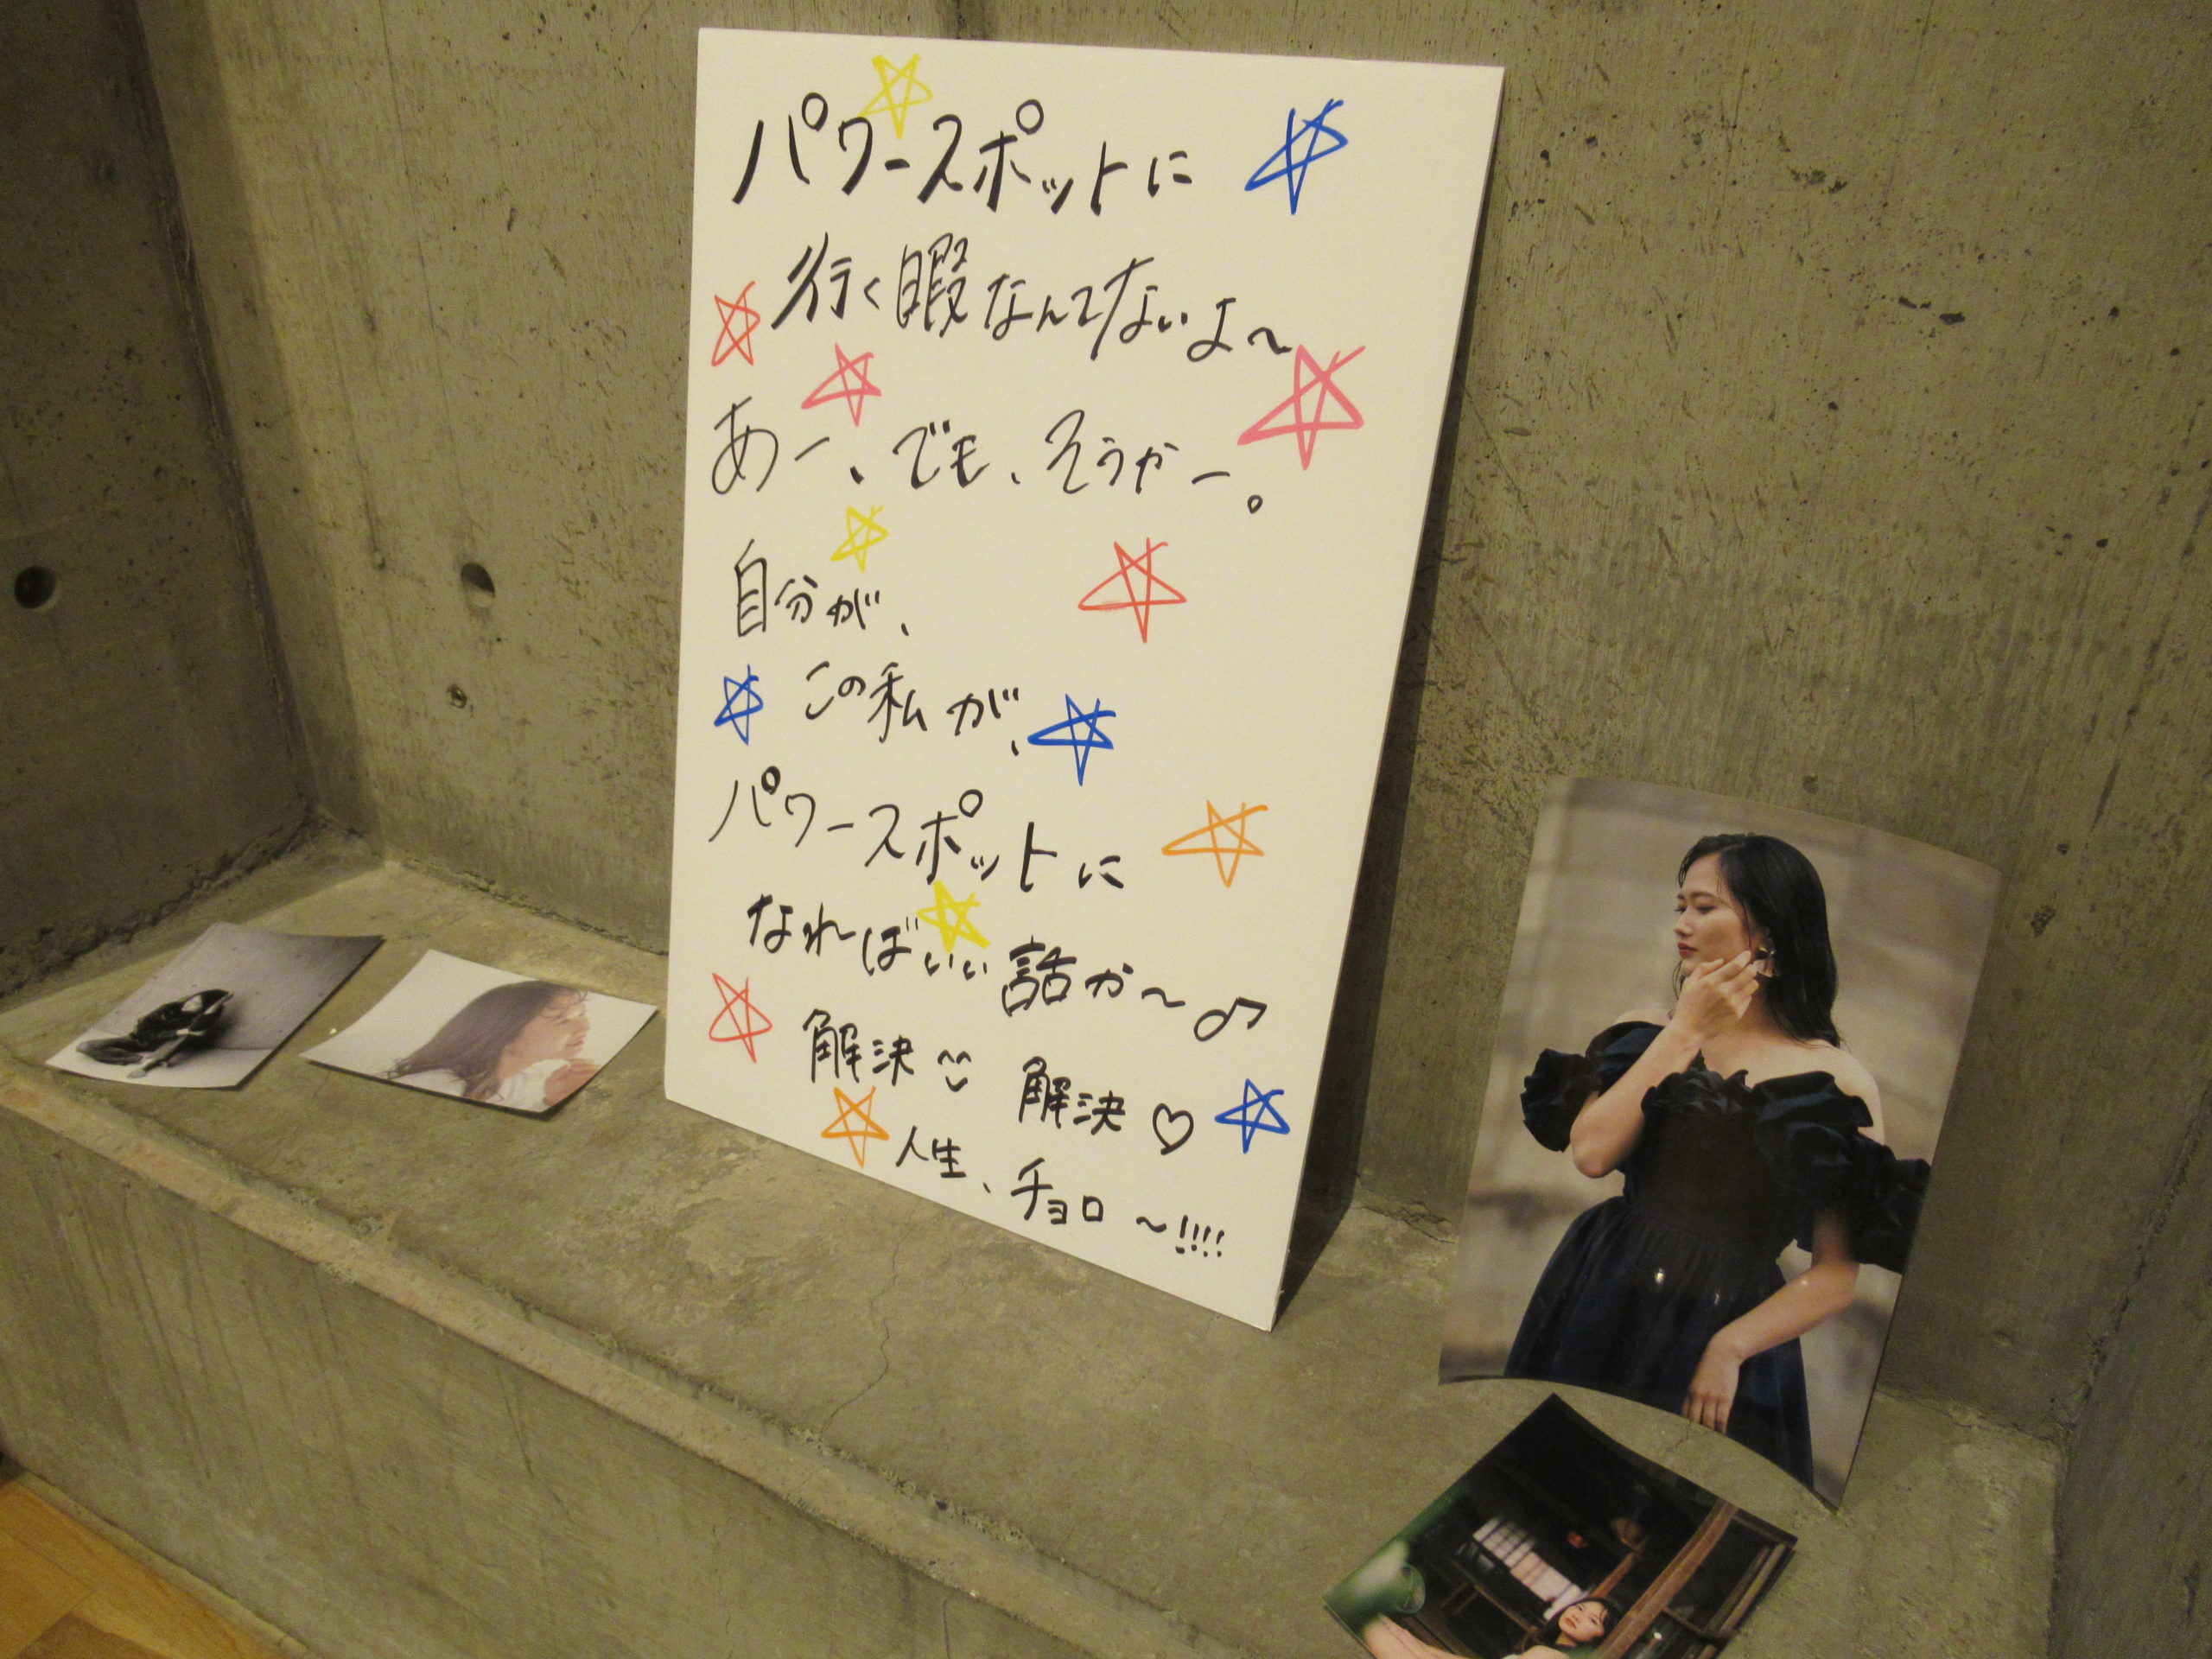 パワースポットに
行く暇なんてないよ〜
あー、でも、そうかー。
自分が、
この私が、
パワースポットに
なればいい話か〜♪
解決 解決♡
人生、チョロ〜!!!!